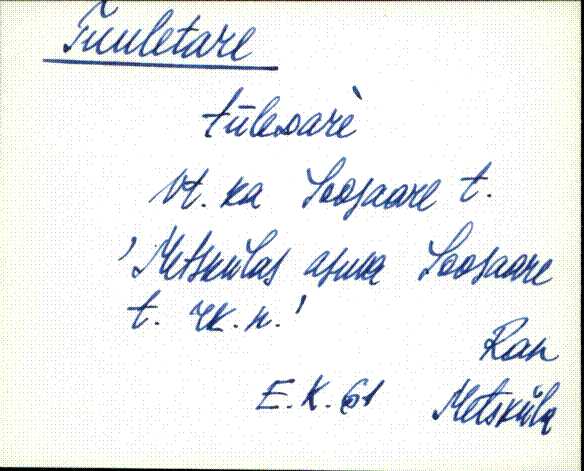 Tuuletare
tūlesarè
Vt. ka Soosaare t.
'Metskülas asuva Soosaare
t. rk. n.'
Ran
E.K. 61 Metsküla